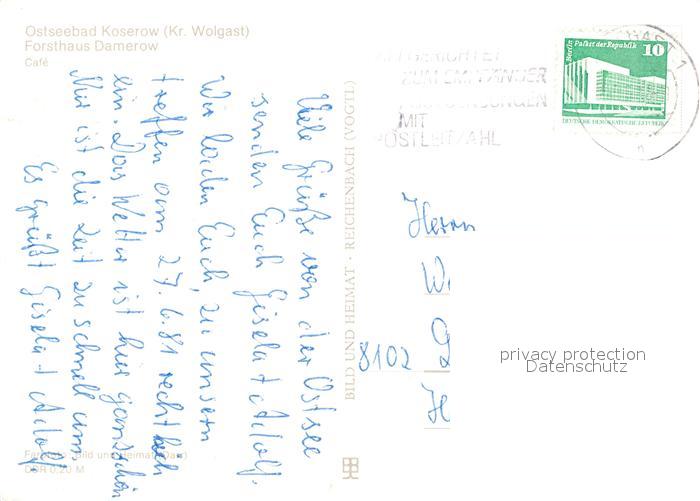 Ostseebad Koserow (Kr. Wolgast)
Forsthaus Damerow
Café
Viele Grüße von der Ostsee
senden Euch Gisela + Adolf.
Wir laden Euch, zu unserm
treffen am 27.6.81 recht
ein. Das Wetter ist hier ganz schön
Nur ist die Zeit zu schnell um
Es grüßt Gisela + Adolf
BILD UND HEIMAT · REICHENBACH (VOGTL)
ZUM EMPFÄNGER
MIT
POSTLEITZAHL
Berlin Palast der Republik 10
DEUTSCHE DEMOKRATISCHE REPUBLIK
Herrn
W
8102
privacy protection
Datenschutz
DDR 0,20 M